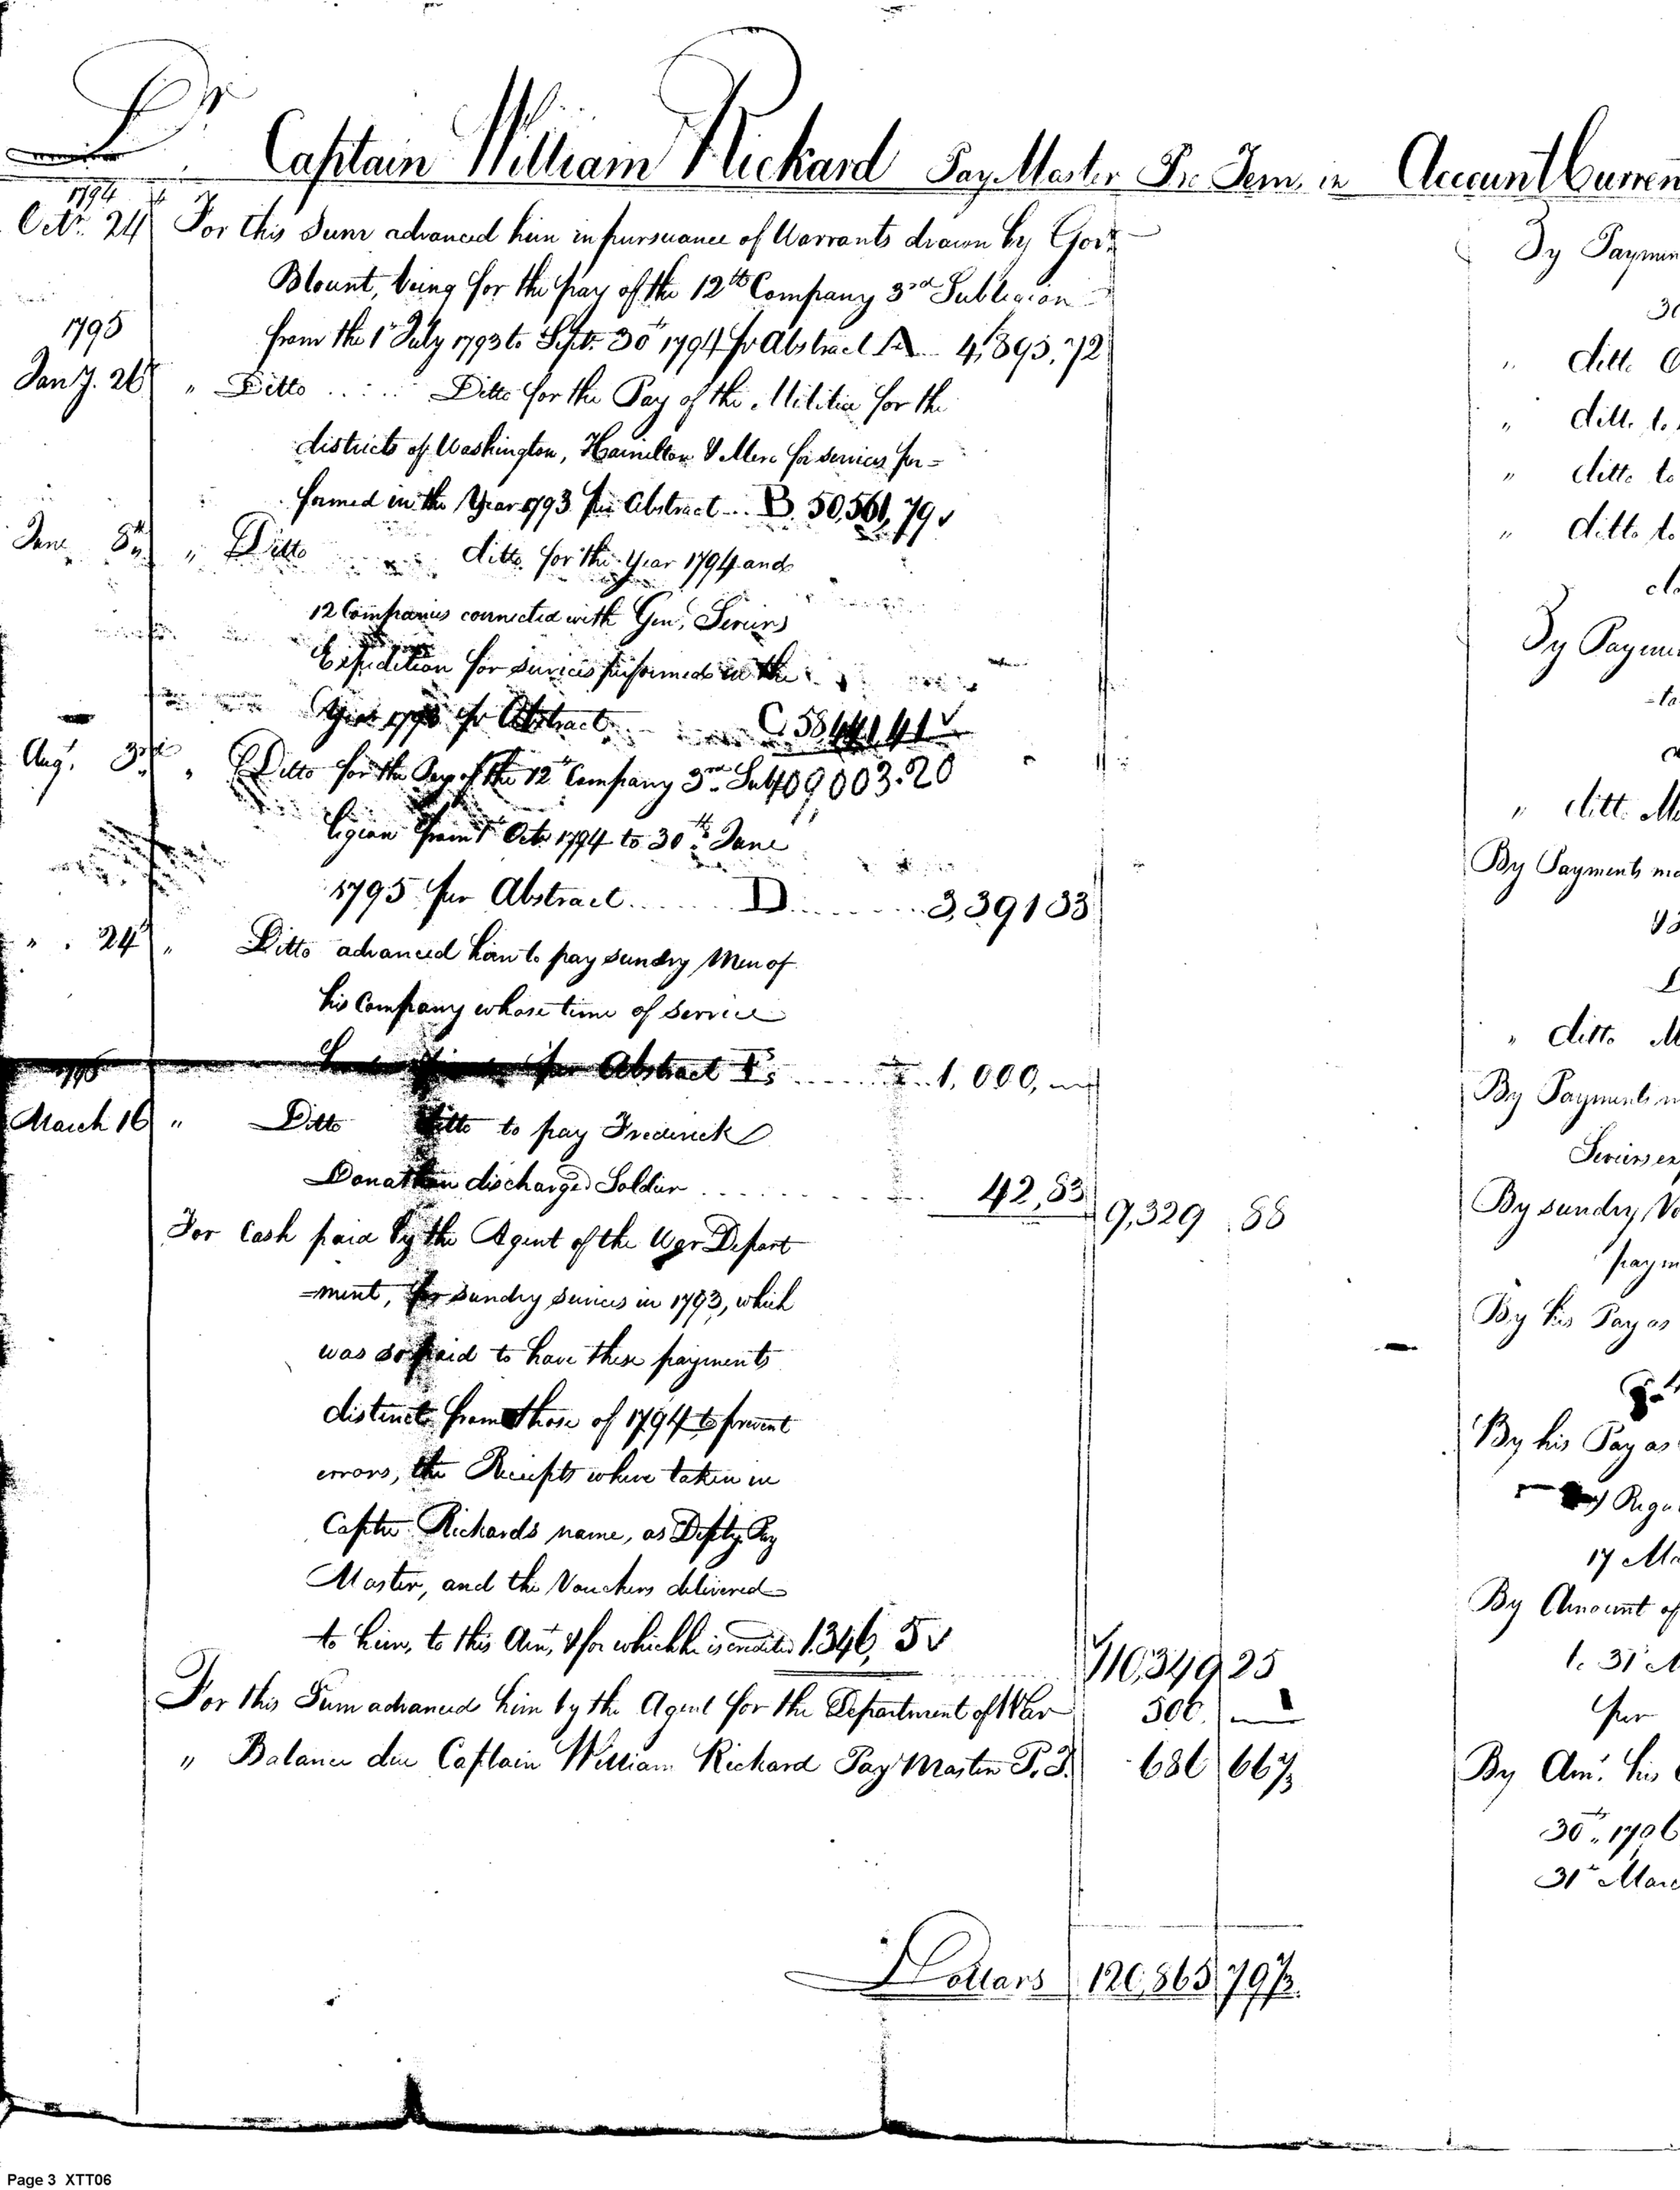 Dr. Captain William Rickard Pay Master Pr. Tem. in Account Curren
1794
Octr. 24 For this Sum advanced him in pursuance of Warrants drawn by Govr.
Blount, being for the pay of the 12th Company 3rd Sublegion
from the 1st July 1793 to Septr. 30th 1794 pr Abstract A 4,895,72
1795
Jany. 26 " Ditto Ditto for the Pay of the Militia for the
districts of Washington, Hamilton & Mero for services per=
formed in the Year 1793 per Abstract B. 50,561,79
June 8th " Ditto ditto for the Year 1794 and
12 Companies connected with Genl. Seviers
Expedition for services performed in the
Year 1793 pr Abstract C 58,441,41
Augt. 3rd " Ditto for the Pay of the 12th Company 3rd Sub 109003.20
legion from 1st Octr 1794 to 30th June
1795 per Abstract D 3,391 33
" . 24th " Ditto advanced him to pay sundry Men of
his Company whose time of service
per Abstract E 1,000,
March 16 " Ditto ditto to pay Frederick
Donathan discharged Soldier 42,83 9,329 88
For Cash paid by the Agent of the War Depart
=ment, for sundry services in 1793, which
was so paid to have these payments
distinct from those of 1794 to prevent
errors, the Receipts where taken in
Captn. Richards name, as Depty. Pay
Master, and the Vouchers delivered
to him, to this Amt. & for which he is credited 1.346, 5
110,349 25
For this Sum advanced him by the Agent for the Department of War 500
" Balance due Captain William Rickard Pay Master P. T. 686 66 2/3
Dollars 120,865 79 2/3
By Paymen
30
" ditto
" ditto to
" ditto to
" ditto to
By Payme
" ditto
By Payments ma
" ditto
By Payments m
Seviers ex
By sundry Vo
paym
By his Pay as
By his Pay as
Regu
17 Ma
By Amount of
to 31st M
per
By Amt. his
30th, 1796
31st Marc
Page 3 XTT06